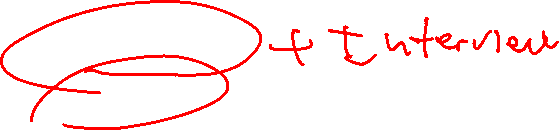 + Interview